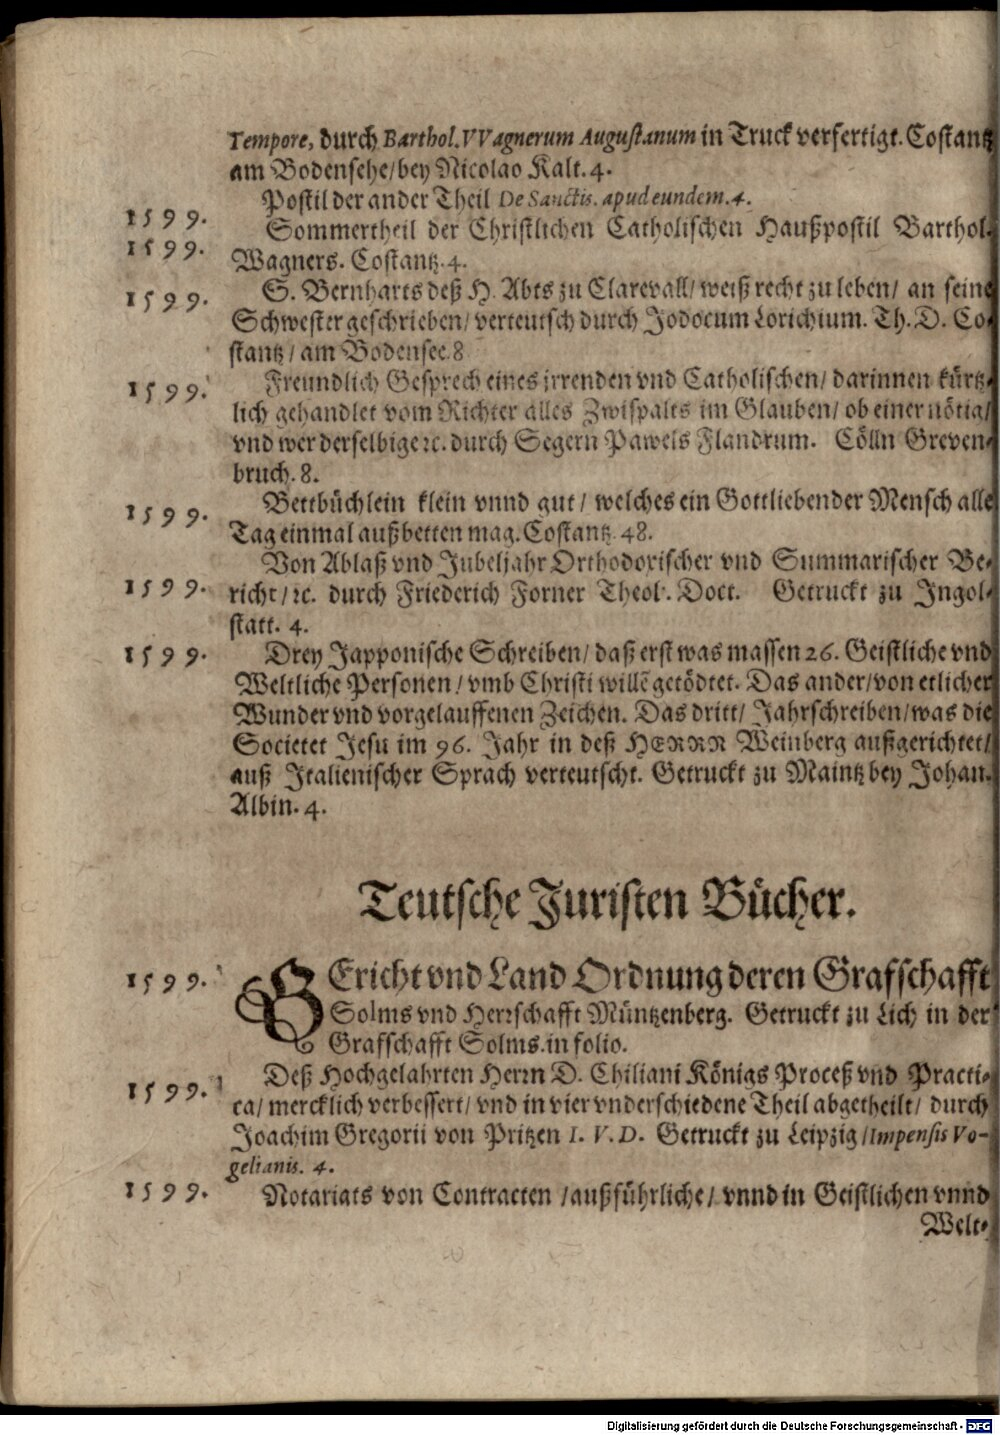 Tempore, durch Barthol. VVagnerum Augustanum in Truck verfertigt. Costantz
am Bodensehe/bey Nicolao Kalt. 4.
Postil der ander Theil De Sanctis. apud eundem. 4.
1599. Sommertheil der Christlichen Catholischen Haußpostil Barthol.
1599. Wagners. Costantz. 4.
1599. S. Bernharts deß H. Abts zu Clarevall/ weiß recht zu leben/ an seine
Schwester geschrieben/ verteutsch durch Jodocum Lorichium. Th. D. Co-
stantz/ am Bodensee. 8
1599. Freundlich Gesprech eines jrrenden vnd Catholischen/ darinnen kürtz-
lich gehandlet vom Richter alles Zwispalts im Glauben/ ob einer nötig/
vnd wer derselbige ꝛc. durch Segern Pawels Flandrum. Cölln Greven-
bruch. 8.
1599. Bettbüchlein klein vnnd gut/ welches ein Gottliebender Mensch alle
Tag einmal außbetten mag. Costantz. 48.
Von Ablaß vnd Jubeljahr Orthodoxischer vnd Summarischer Be-
1599. richt/ ꝛc. durch Friederich Forner Theol. Doct. Getruckt zu Ingol-
statt. 4.
1599. Drey Japponische Schreiben/ daß erst was massen 26. Geistliche vnd
Weltliche Personen/ vmb Christi willē getödtet. Das ander/ von etlicher
Wunder vnd vorgelauffenen Zeichen. Das dritt/ Jahrschreiben/ was die
Societet Jesu im 96. Jahr in deß HERRN Weinberg außgerichtet/
auß Italienischer Sprach verteutscht. Getruckt zu Maintz bey Johan.
Albin. 4.
Teutsche Juristen Bücher.
1599. GEricht vnd Land Ordnung deren Grafschafft
Solms vnd Herrschafft Müntzenberg. Getruckt zu Lich in der
Grafschafft Solms. in folio.
Deß Hochgelahrten Herrn D. Chiliani Königs Proceß vnd Practi-
1599. ca/ mercklich verbessert/ vnd in vier vnderschiedene Theil abgetheilt/ durch
Joachim Gregorii von Pritzen I. V. D. Getruckt zu Leipzig/ Impensis Vo-
gelianis. 4.
1599. Notariats von Contracten/ außführliche/ vnnd in Geistlichen vnnd
Welt-
Digitalisierung gefördert durch die Deutsche Forschungsgemeinschaft - DFG